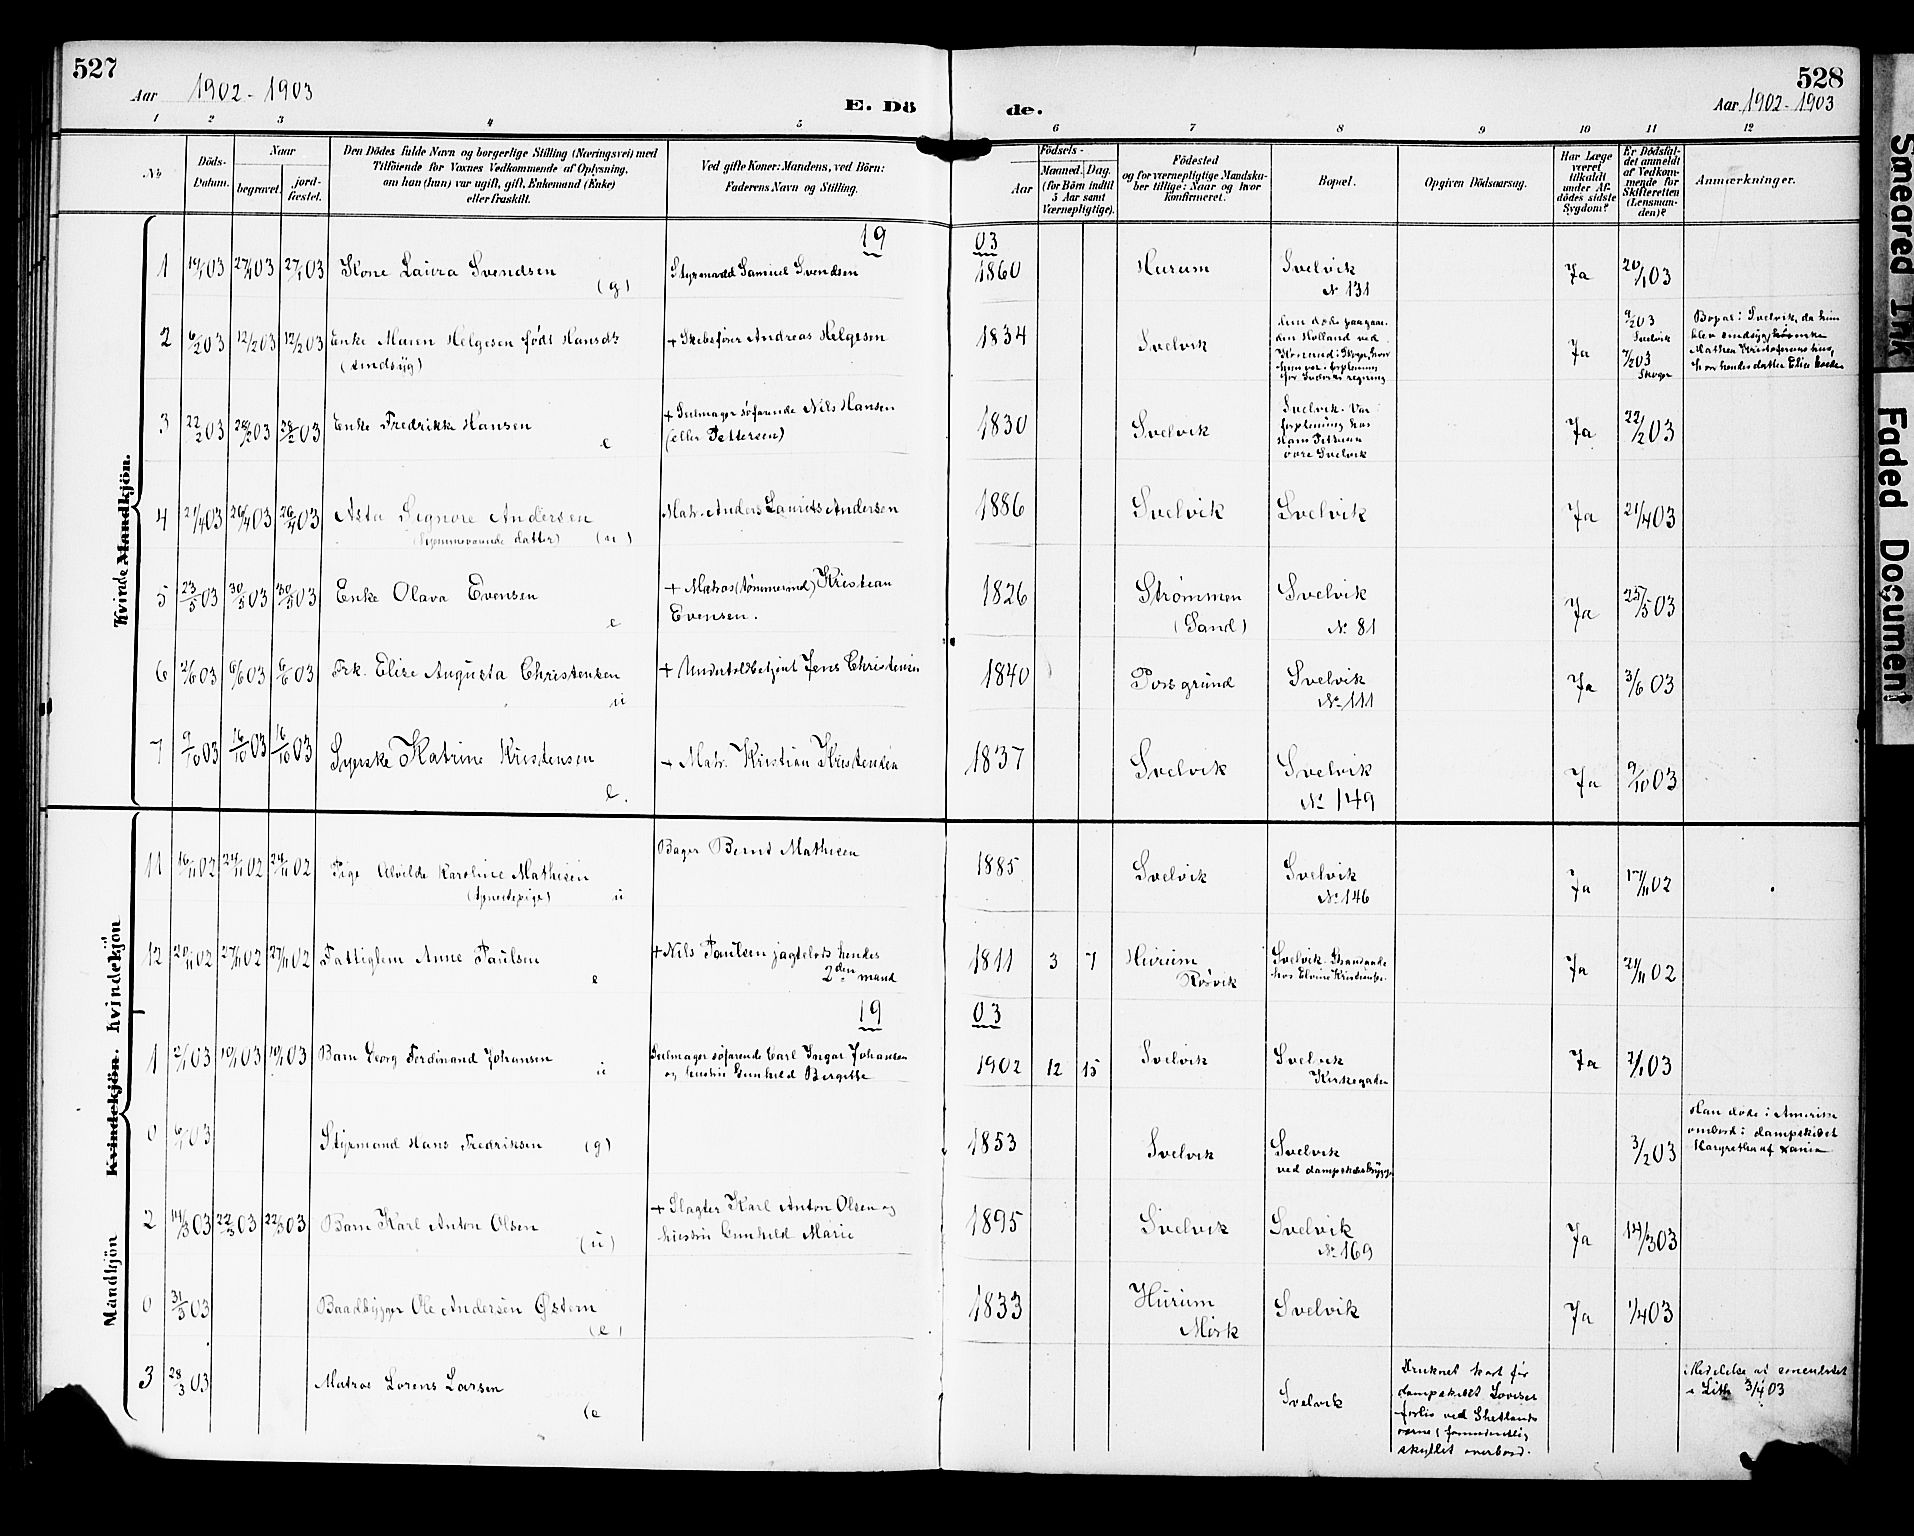 527
Aar 1902-1903
E. Dö
de.
528
Aar 1902-1903
1 2 3 4 5 6 7 8 9 10 11 12
No
Döds-Datum.
Naar
begravet.
jordfæstet.
Den Dödes fulde Navn og borgerlige Stilling (Næringsvei) med
Tilföiende for Voxnes Vedkommende af Oplysning,
om han (hun) var ugift, gift, Enkemand (Enke)
eller fraskilt.
Ved gifte Koner: Mandens, ved Börn:
Faderens Navn og Stilling.
Födsels-
Aar
Maaned. Dag.
(for Börn indtil
5 Aar samt
Værnepligtige).
Födested
og for værnepligtige Mandska-
ber tillige: Naar og hvor
konfirmeret.
Bopæl.
Opgiven Dödsaarsag.
Har Læge
været
tilkaldt
under Af-
dödes sidste
Sygdom?
Er Dödsfal-
det anmeldt
af Vedkom-
mende for
Skifteretten
(Lensman-
den)?
Anmærkninger.
Kvinde Mandkjön.
19 03
1 19/1 03 27/1 03 27/1 03 Kone Laura Svendsen (g) Styrmand Samuel Svendsen 1860 Hurum Svelvik
No 131 Ja 20/1 03
2 6/2 03 12/2 03 12/2 03 Enke Maren Helgesen født Hansdtr
(sindsyg) + Skibsfører Andreas Helgesen 1834 Svelvik
Ja 9/2 03
Svelvik
7/2 03
Skoger
Bopæl: Svelvik, da hun
blev sindsyg
3 22/2 03 28/2 03 28/2 03 Enke Fredrikke Hansen e + Seilmager søfarende Nils Hansen
(eller Pettersen) 1830 Svelvik Svelvik. Var
forpleining hos
Hans Pettersen
øvre Svelvik Ja 22/2 03
4 21/4 03 26/4 03 26/4 03 Asta Signore Andersen
(hjemmeværende datter) (u) Matr. Anders Laurits Andersen 1886 Svelvik Svelvik Ja 21/4 03
5 23/5 03 30/5 03 30/5 03 Enke Olava Evensen e + Matros (tømmermd) Kristian
Evensen. 1826 Strømmen
(Sand) Svelvik
No 81 Ja 25/5 03
6 2/6 03 6/6 03 6/6 03 Frk. Elise Augusta Christensen u + Undertoldbetjent Jens Christensen 1840 Porsgrund Svelvik
No 111 Ja 3/6 03
7 9/10 03 16/10 03 16/10 03 Syerske Katrine Kristensen e. + Matr. Kristian Kristensen 1837 Svelvik Svelvik
No 149 Ja 9/10 03
Kvindekjön. kvindekjön
11 16/11 02 24/11 02 24/11 02 Pige Alvilde Karoline Mathisen
(tjenestepige) u Bager Bernt Mathisen 1885 Svelvik Svelvik
No 146 Ja 17/11 02
12 20/11 02 27/11 02 27/11 02 Fattiglem Anne Paulsen e + Nils Paulsen jagtelods hendes
2den mand 1811 3 7 Hurum
Røsvik Svelvik. Strandgade
hos Elvine Kristiansen Ja 21/11 02
19 03
1 2/1 03 10/1 03 10/1 03 Barn Georg Ferdinand Johansen u Seilmager søfarende Carl Ingar Johansen
og hustru Gunhild Bergitte 1902 12 15 Svelvik Svelvik
Kirkegaden Ja 2/1 03
0 6/1 03 Styrmand Hans Fredriksen (g) 1853 Svelvik Svelvik
ved dampskibsbryggen 3/2 03 Han døde i Amerika
ombord i dampskibet
Mandkjön
2 14/3 03 22/3 03 22/3 03 Barn Karl Anton Olsen (u) + Slagter Karl Anton Olsen og
hustru Gunhild Marie 1895 Svelvik Svelvik
No 169 Ja 14/3 03
0 31/3 03 Baadbygger Ole Andersen Østern (e) 1833 Hurum
Mørk Svelvik Ja 1/4 03
3 28/3 03 Matros Lorens Larsen (e Svelvik Druknet kort før
dampskibet Lovises
forlis ved Shetlands
øerne (formodentlig
skyllet overbord. Meddelse af konsulatet
i Lith 3/4 03
Smeared Ink
Faded Document